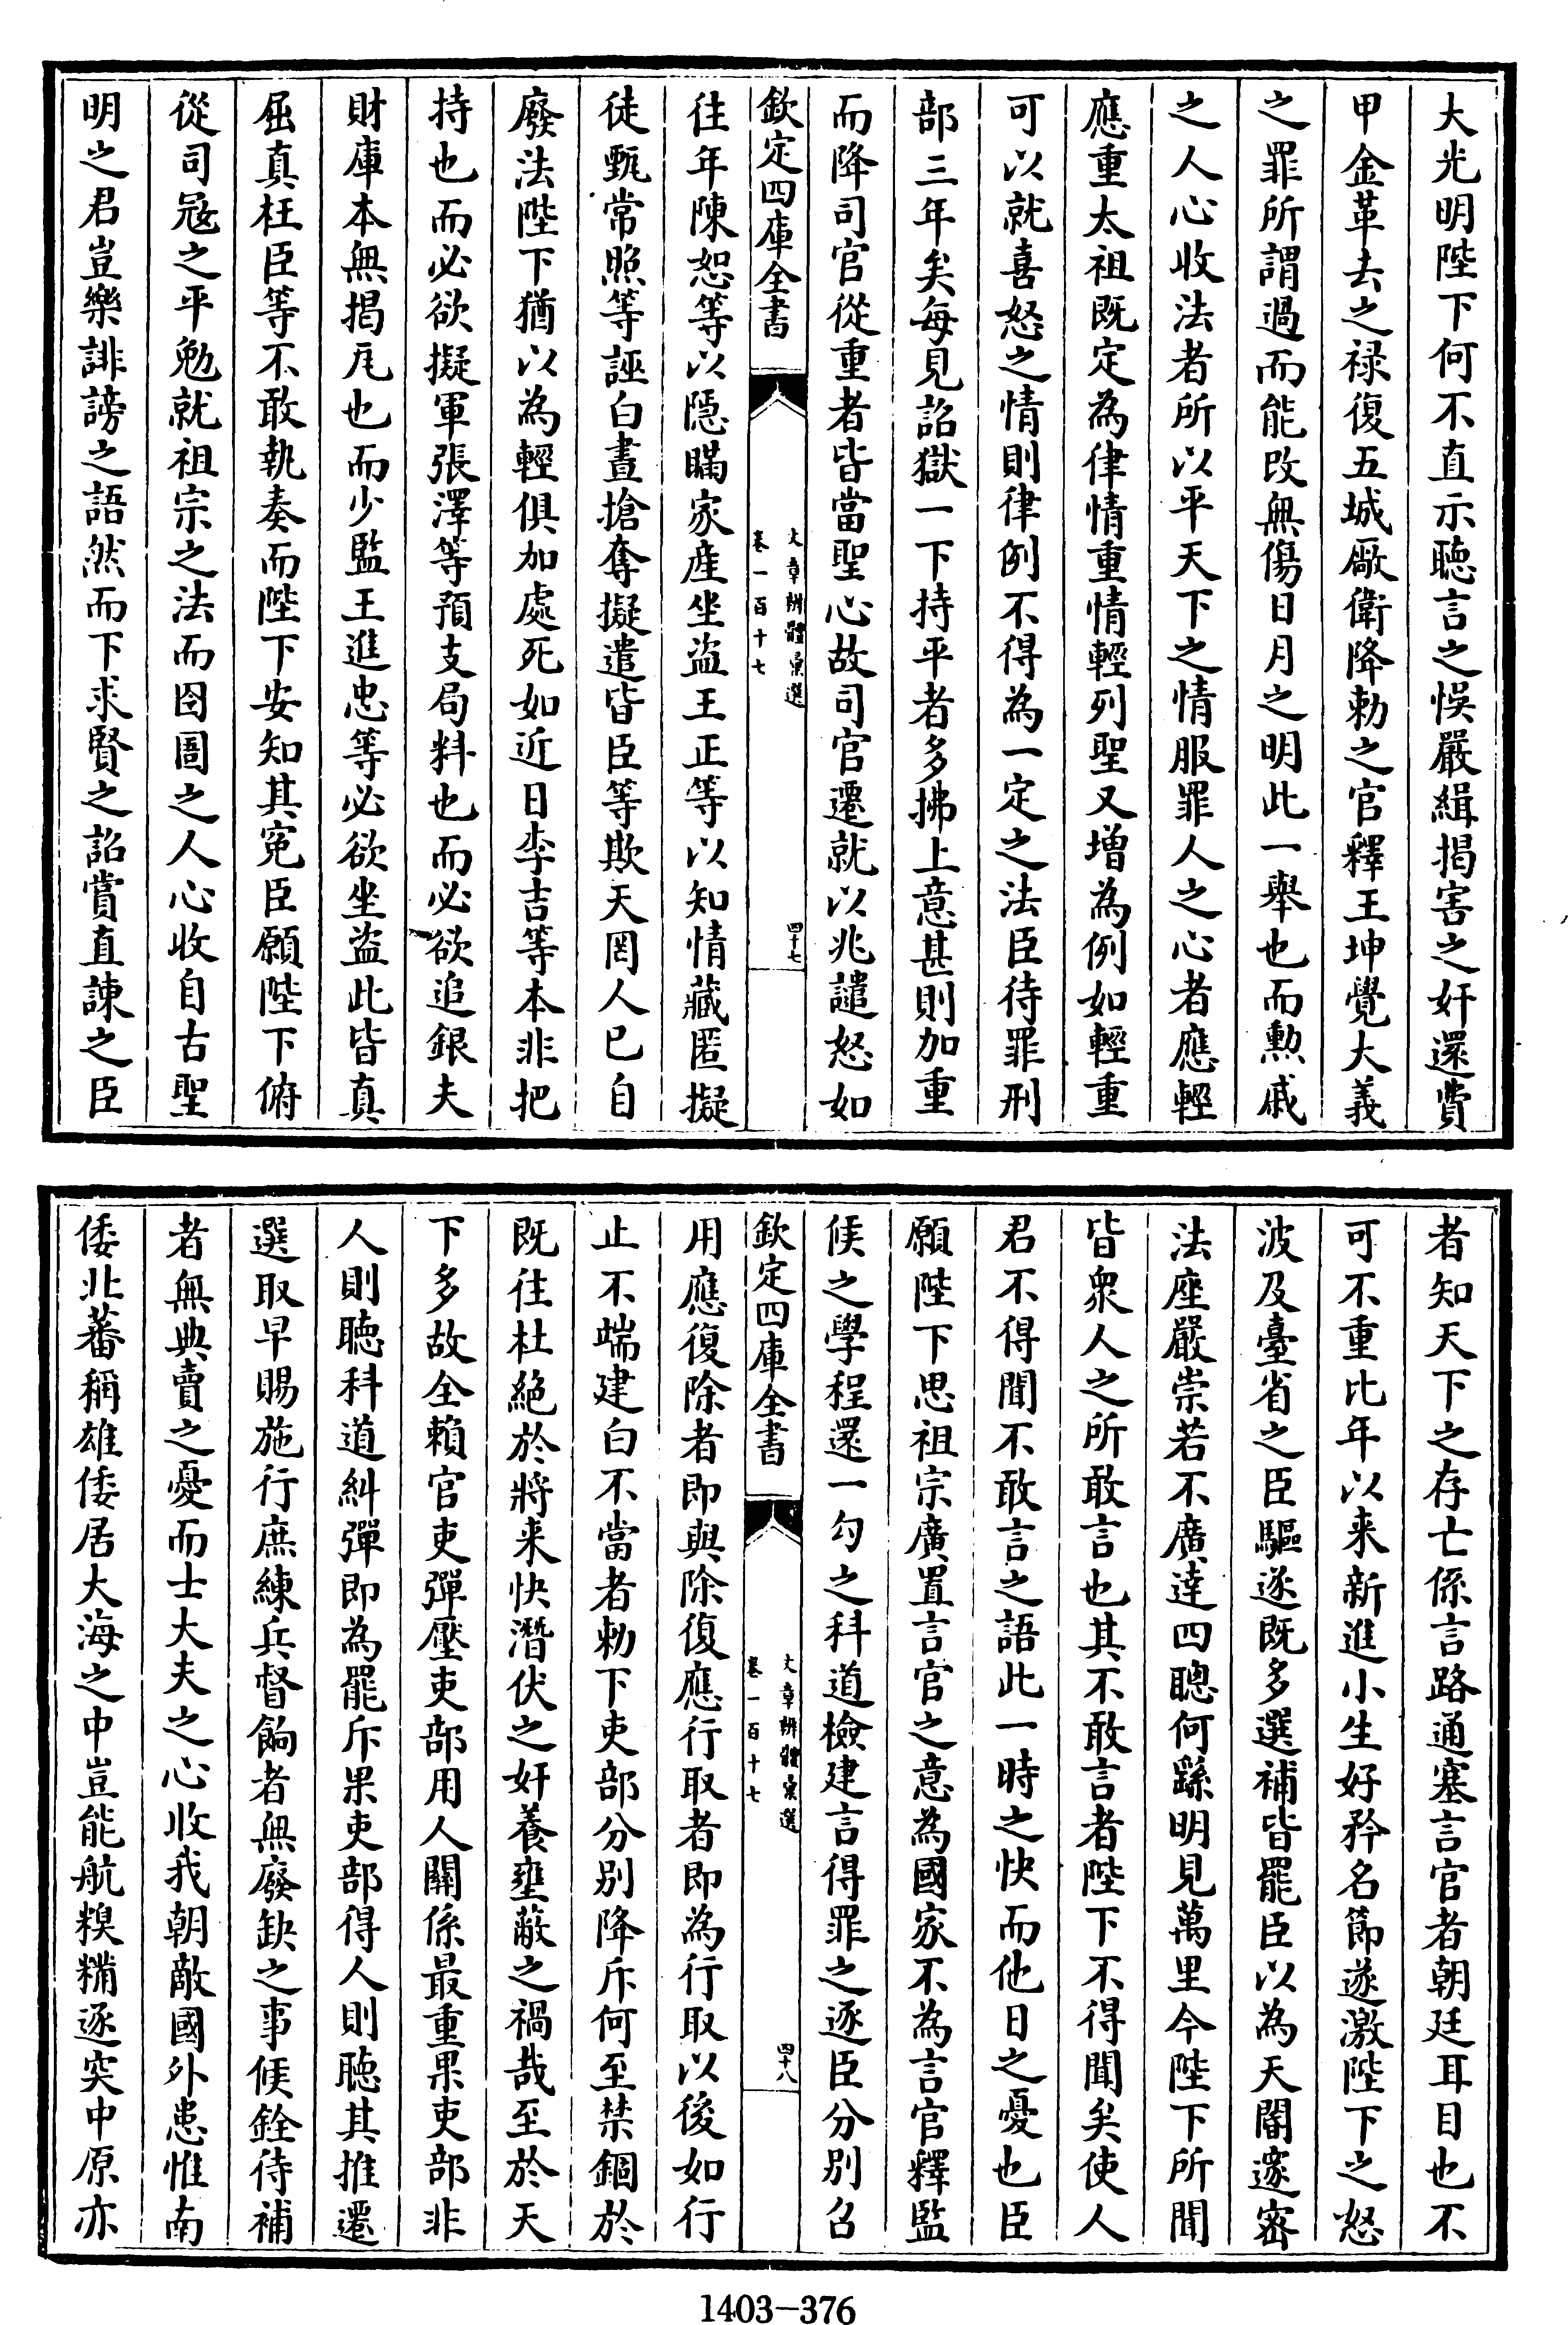 大光明陛下何不直示聴言之悞嚴緝揭害之奸還費
甲金革去之禄復五城厰衛降勅之官釋王坤覺大義
之罪所謂過而能改無傷日月之明此一舉也而勲戚
之人心收法者所以平天下之情服罪人之心者應輕
應重太祖既定為律情重情輕列聖又增為例如輕重
可以就喜怒之情則律例不得為一定之法臣待罪刑
部三年矣每見詔獄一下持平者多拂上意甚則加重
而降司官從重者皆當聖心故司官遷就以兆譴怒如
欽定四庫全書
文章辨體彙選
卷一百十七
四十七
往年陳恕等以隠瞞家産坐盜王正等以知情藏匿擬
徒甄常照等誣白晝搶奪擬遣皆臣等欺天罔人已自
廢法陛下猶以為輕俱加處死如近日李吉等本非把
持也而必欲擬軍張澤等預支局料也而必欲追銀夫
財庫本無揭尾也而少監王進忠等必欲坐盜此皆真
屈真枉臣等不敢執奏而陛下安知其寃臣願陛下俯
從司冦之平勉就祖宗之法而囹圄之人心收自古聖
明之君豈樂誹謗之語然而下求賢之詔賞直諫之臣
者知天下之存亡係言路通塞言官者朝廷耳目也不
可不重比年以来新進小生好矜名節遂激陛下之怒
波及臺省之臣驅逐既多選補皆罷臣以為天閽邃宻
法座嚴崇若不廣達四聰何繇明見萬里今陛下所聞
皆衆人之所敢言也其不敢言者陛下不得聞矣使人
君不得聞不敢言之語此一時之快而他日之憂也臣
願陛下思祖宗廣置言官之意為國家不為言官釋監
候之學程還一勾之科道檢建言得罪之逐臣分别召
欽定四庫全書
文章辨體彙選
卷一百十七
四十八
用應復除者即與除復應行取者即為行取以後如行
止不端建白不當者勅下吏部分别降斥何至禁錮於
既往杜絶於將来快潛伏之奸養壅蔽之禍哉至於天
下多故全賴官吏彈壓吏部用人關係最重果吏部非
人則聴科道糾彈即為罷斥果吏部得人則聴其推遷
選取早賜施行庶練兵督餉者無廢缺之事候銓待補
者無典賣之憂而士大夫之心收我朝敵國外患惟南
倭北蕃稱雄倭居大海之中豈能航糗糒逐突中原亦
1403-376